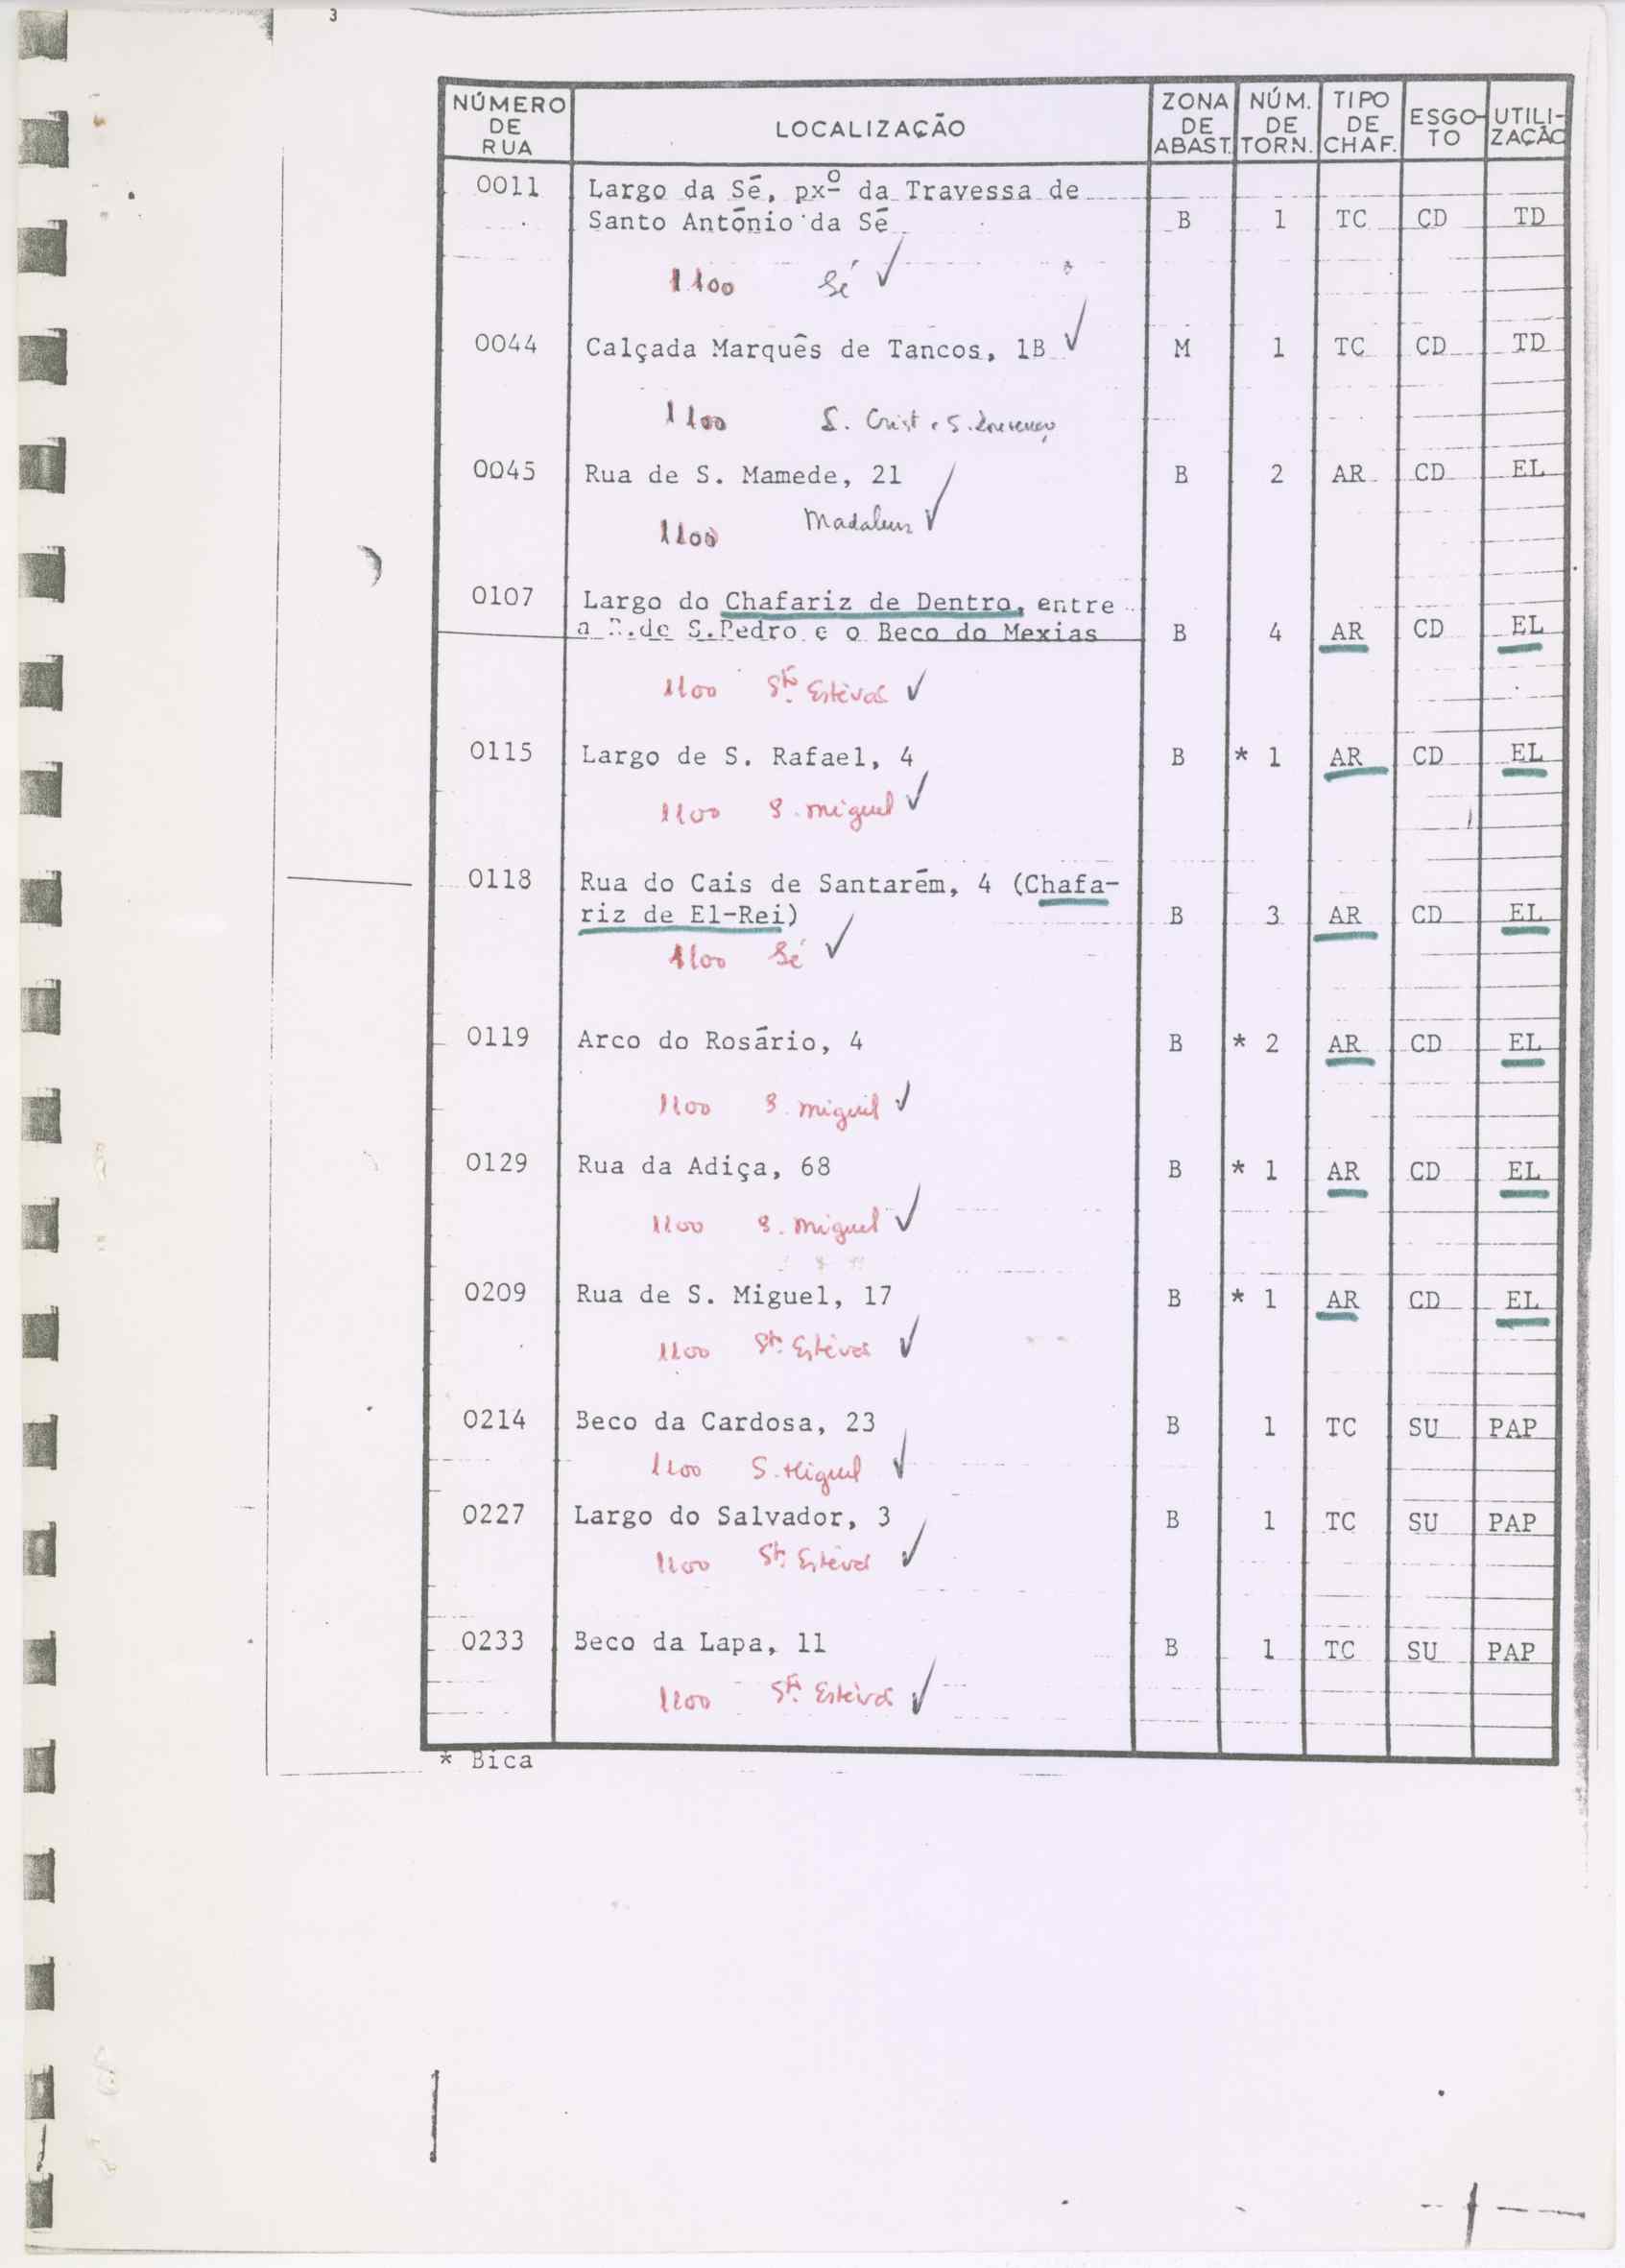 3
NÚMERO DE RUA LOCALIZAÇÃO ZONA DE ABAST. NÚM. DE TORN. TIPO DE CHAF. ESGO-TO UTILI-ZAÇÃO
0011 Largo da Sé, pxº da Travessa de
Santo António da Sé B 1 TC CD TD
1100 Sé ✓
0044 Calçada Marquês de Tancos, 1B ✓ M 1 TC CD TD
1100 S. Crist e S. Lourenço
0045 Rua de S. Mamede, 21 B 2 AR CD EL
1100 Madalena ✓
0107 Largo do Chafariz de Dentro, entre
a R.de S.Pedro e o Beco do Mexias B 4 AR CD EL
1100 Stº Estêvão ✓
0115 Largo de S. Rafael, 4 B * 1 AR CD EL
1100 S. miguel ✓
0118 Rua do Cais de Santarém, 4 (Chafa-
riz de El-Rei) B 3 AR CD EL
1100 Sé ✓
0119 Arco do Rosário, 4 B * 2 AR CD EL
1100 S. miguel ✓
0129 Rua da Adiça, 68 B * 1 AR CD EL
1100 S. miguel ✓
0209 Rua de S. Miguel, 17 B * 1 AR CD EL
1100 Stº Estêvão ✓
0214 Beco da Cardosa, 23 B 1 TC SU PAP
1100 S. Miguel ✓
0227 Largo do Salvador, 3 B 1 TC SU PAP
1100 Stº Estêvão ✓
0233 Beco da Lapa, 11 B 1 TC SU PAP
1100 Stº Estêvão ✓
* Bica